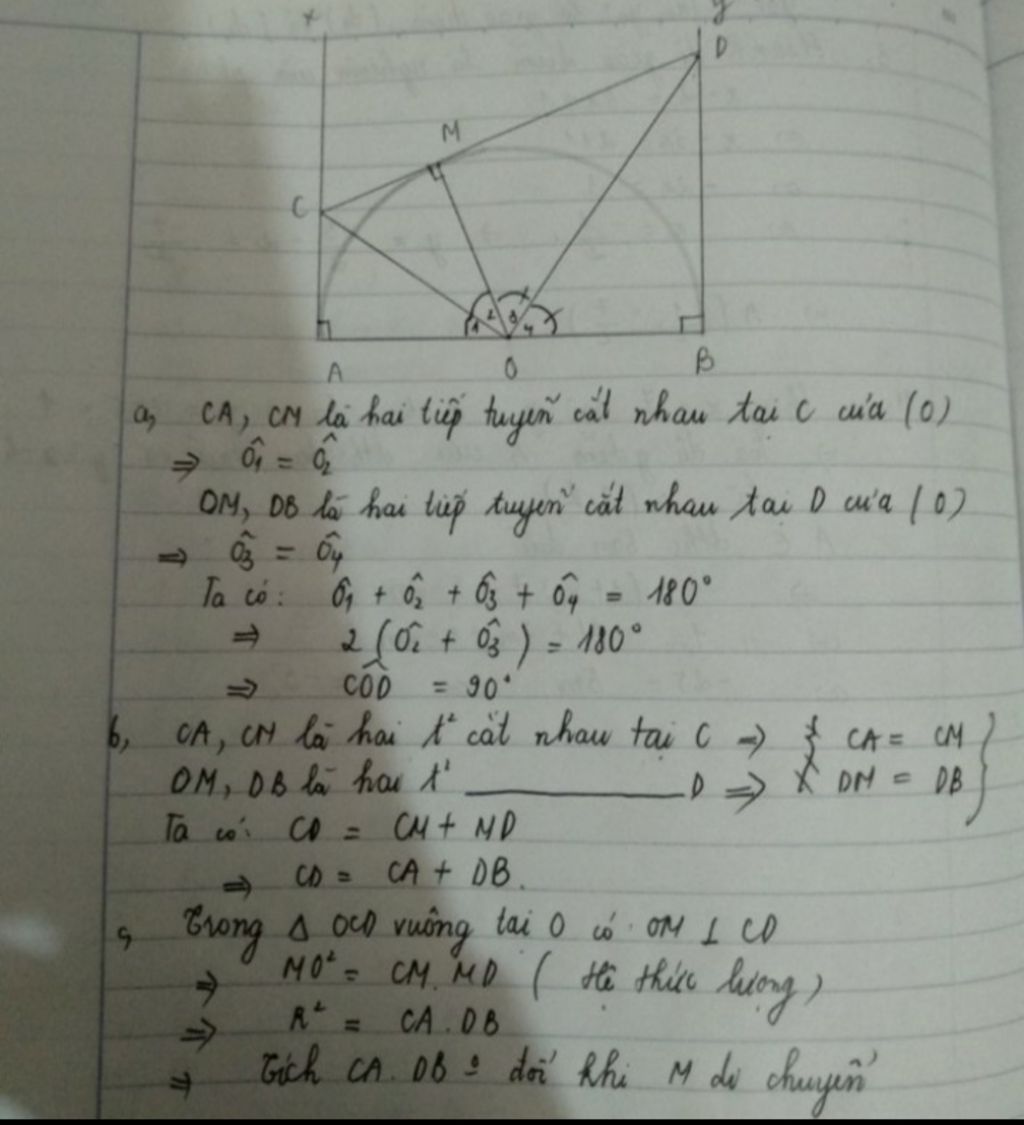 x
y
D
M
C
1 2 3 4
A O B
a, CA, CM là hai tiếp tuyến cắt nhau tại C của (O)
⇒ Ô1 = Ô2
OM, DB là hai tiếp tuyến cắt nhau tại D của (O)
⇒ Ô3 = Ô4
Ta có: Ô1 + Ô2 + Ô3 + Ô4 = 180°
⇒ 2 (Ô2 + Ô3) = 180°
⇒ CÔD = 90°
b, CA, CM là hai t² cắt nhau tại C ⇒ { CA = CM }
OM, DB là hai t² ____________ D ⇒ { DM = DB }
Ta có: CD = CM + MD
⇒ CD = CA + DB.
c, Trong Δ OCD vuông tại O có OM ⊥ CD
⇒ MO² = CM.MD ( Hệ thức lượng)
⇒ R² = CA.DB
⇒ Tích CA.DB đổi khi M di chuyển